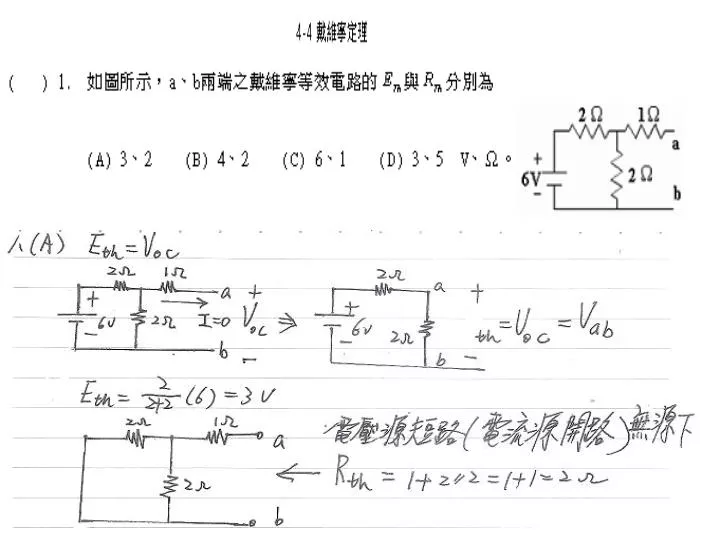 4-4 戴維寧定理
( ) 1. 如圖所示，a、b兩端之戴維寧等效電路的 Eth與 Rth分別為
(A) 3、2 (B) 4、2 (C) 6、1 (D) 3、5 V、Ω。
2Ω 1Ω
a
+
6V
-
2Ω
b
(A) Eth=Voc
2Ω 1Ω
a +
+
-
6V
2Ω I=0 Voc ⇒
b -
2Ω
a +
+
-
6V
2Ω
th=Voc=Vab
b -
Eth= 2/2+2 (6)=3V
2Ω 1Ω
a
2Ω
b
電壓源短路(電流源開路)無源下
← Rth = 1+2//2=1+1=2Ω